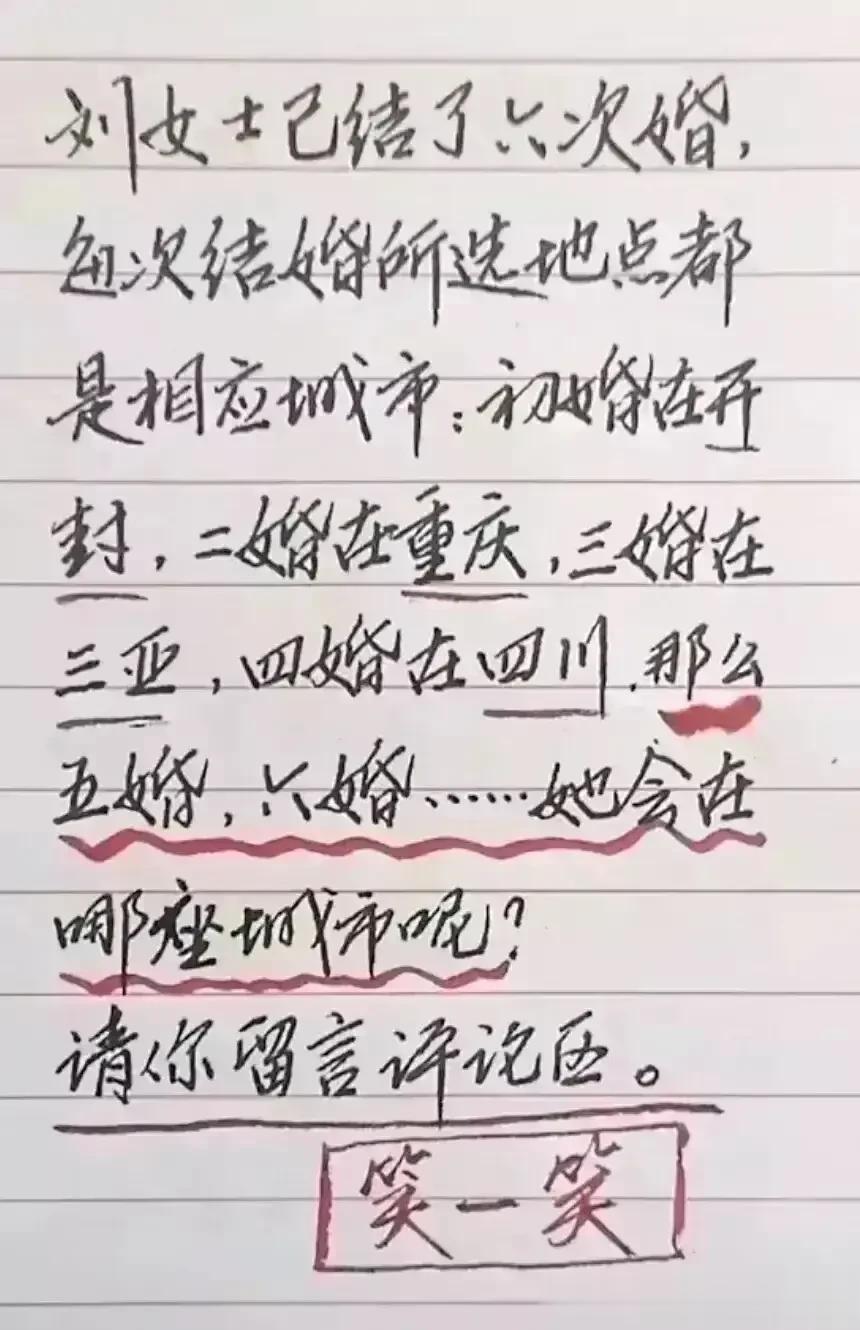 刘女士已结了六次婚，
每次结婚所选地点都
是相应城市：初婚在开
封，二婚在重庆，三婚在
三亚，四婚在四川.那么
五婚，六婚……她会在
哪座城市呢？
请你留言评论区。
笑一笑